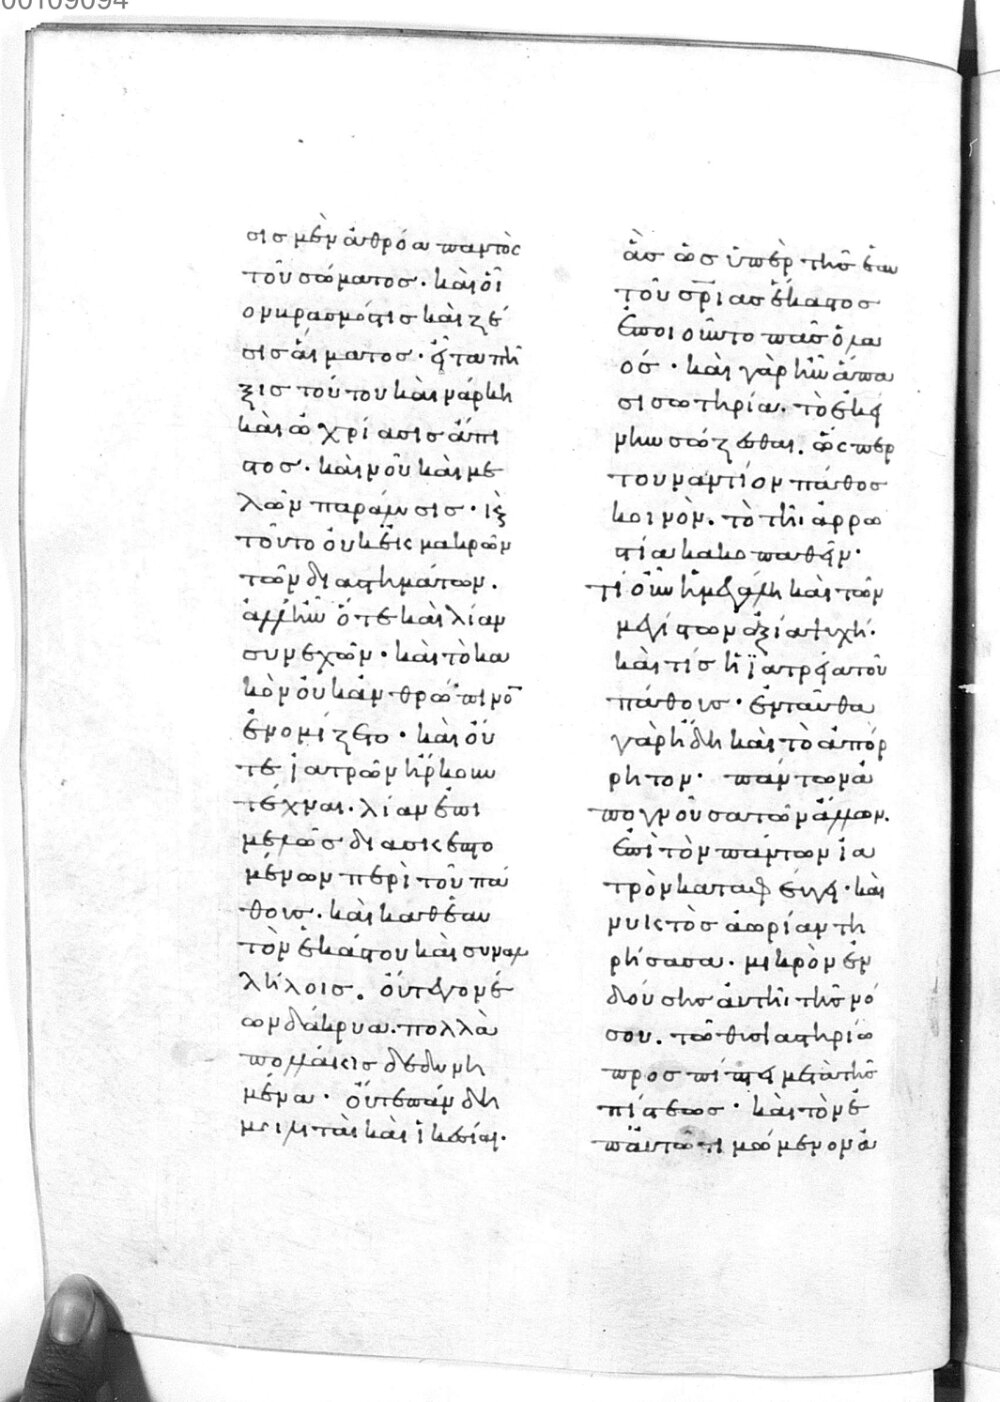 00109094
σισ μὲν ἀθρόα παντὸς
τοῦ σώματος· καὶ οἷ
ον κρασμόστισ καὶ ζέ
σισ αἵματος· εἶτα πῆ
ξισ τούτου καὶ νάρκη
καὶ ὠχρίασισ ἄπι
στοσ· καὶ νοῦ καὶ με
λῶν παράλυσισ· ἐξ
τοῦτο ὀυκ εἰς μακρῶν
τῶν διαστημάτων.
ἀλλ' ἦν ὅτε καὶ λίαν
συνεχῶν· καὶ τὸ κα
κὸν ὀυκ ἀνθρώπινο
ἐνομίζετο· καὶ ὄυ
τε ἰατρῶν ἤρκουν
τέχναι· λίαν ἐπι
μελῶσ διασκεπτο
μένων περὶ τοῦ πά
θουσ· καὶ καθέαυ
τὸν ἑκάστου καὶ συναλ
λήλοισ. ὄυτε γονέ
ων δάκρυα· πολλὰ
πολλάκισ δεδυνη
μένα· ὄυτε πάνδη
μοι λιταὶ καὶ ἱκεσίαι·
ἃσ ὡσ ὑπὲρ τῆσ ἑαυ
τοῦ σρίασ ἕκαστοσ
ἐποιοῦντο πᾶσ ὁ λα
όσ· καὶ γὰρ ἦν ἅπα
σι σωτηρία· τὸ ἐκεί
νην σώζεσθαι. ὥσπερ
τουναντίον πάθοσ
κοινὸν· τὸ τῆι ἀρρω
στία κακοπαθεῖν·
τί οὖν ἡ μεγάλη καὶ τῶν
μεγίστων ἀξία ψυχή·
καὶ τίσ ἡ ἰατρεία τοῦ
πάθουσ· ἐνταῦθα
γὰρ ἤδη καὶ τὸ ἀπόρ
ρητον· πάντων ἀ
πογνοῦσα τῶν ἄλλων·
ἐπὶ τὸν πάντων ἰα
τρὸν καταφεύγει· καὶ
νυκτὸσ ἀωρίαν τη
ρήσασα· μικρὸν ἐν
δούσησ αὐτῆι τῆσ νό
σου. τῶ θυσιαστηρίω
προσπίπτει μετὰ τῆσ
πίστεωσ· καὶ τὸν ἐ
π' αὐτῶ τιμώμενον ἀ